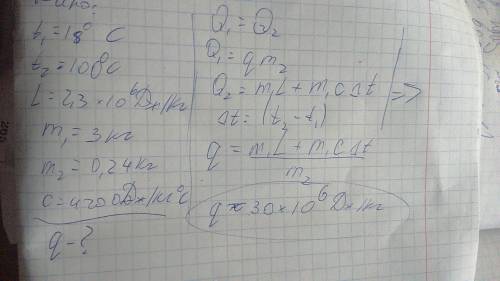 t₁=18° C
t₂=100°C
L=2,3×10⁶Дж/кг
m₁=3кг
m₂=0,24кг
c=4200Дж/кг°С
q-?
Q₁=Q₂
Q₁=qm₂
Q₂=m₁L+m₁cΔt =>
Δt=(t₂-t₁)
q=m₁L+m₁cΔt
m₂
q≈30×10⁶Дж/кг